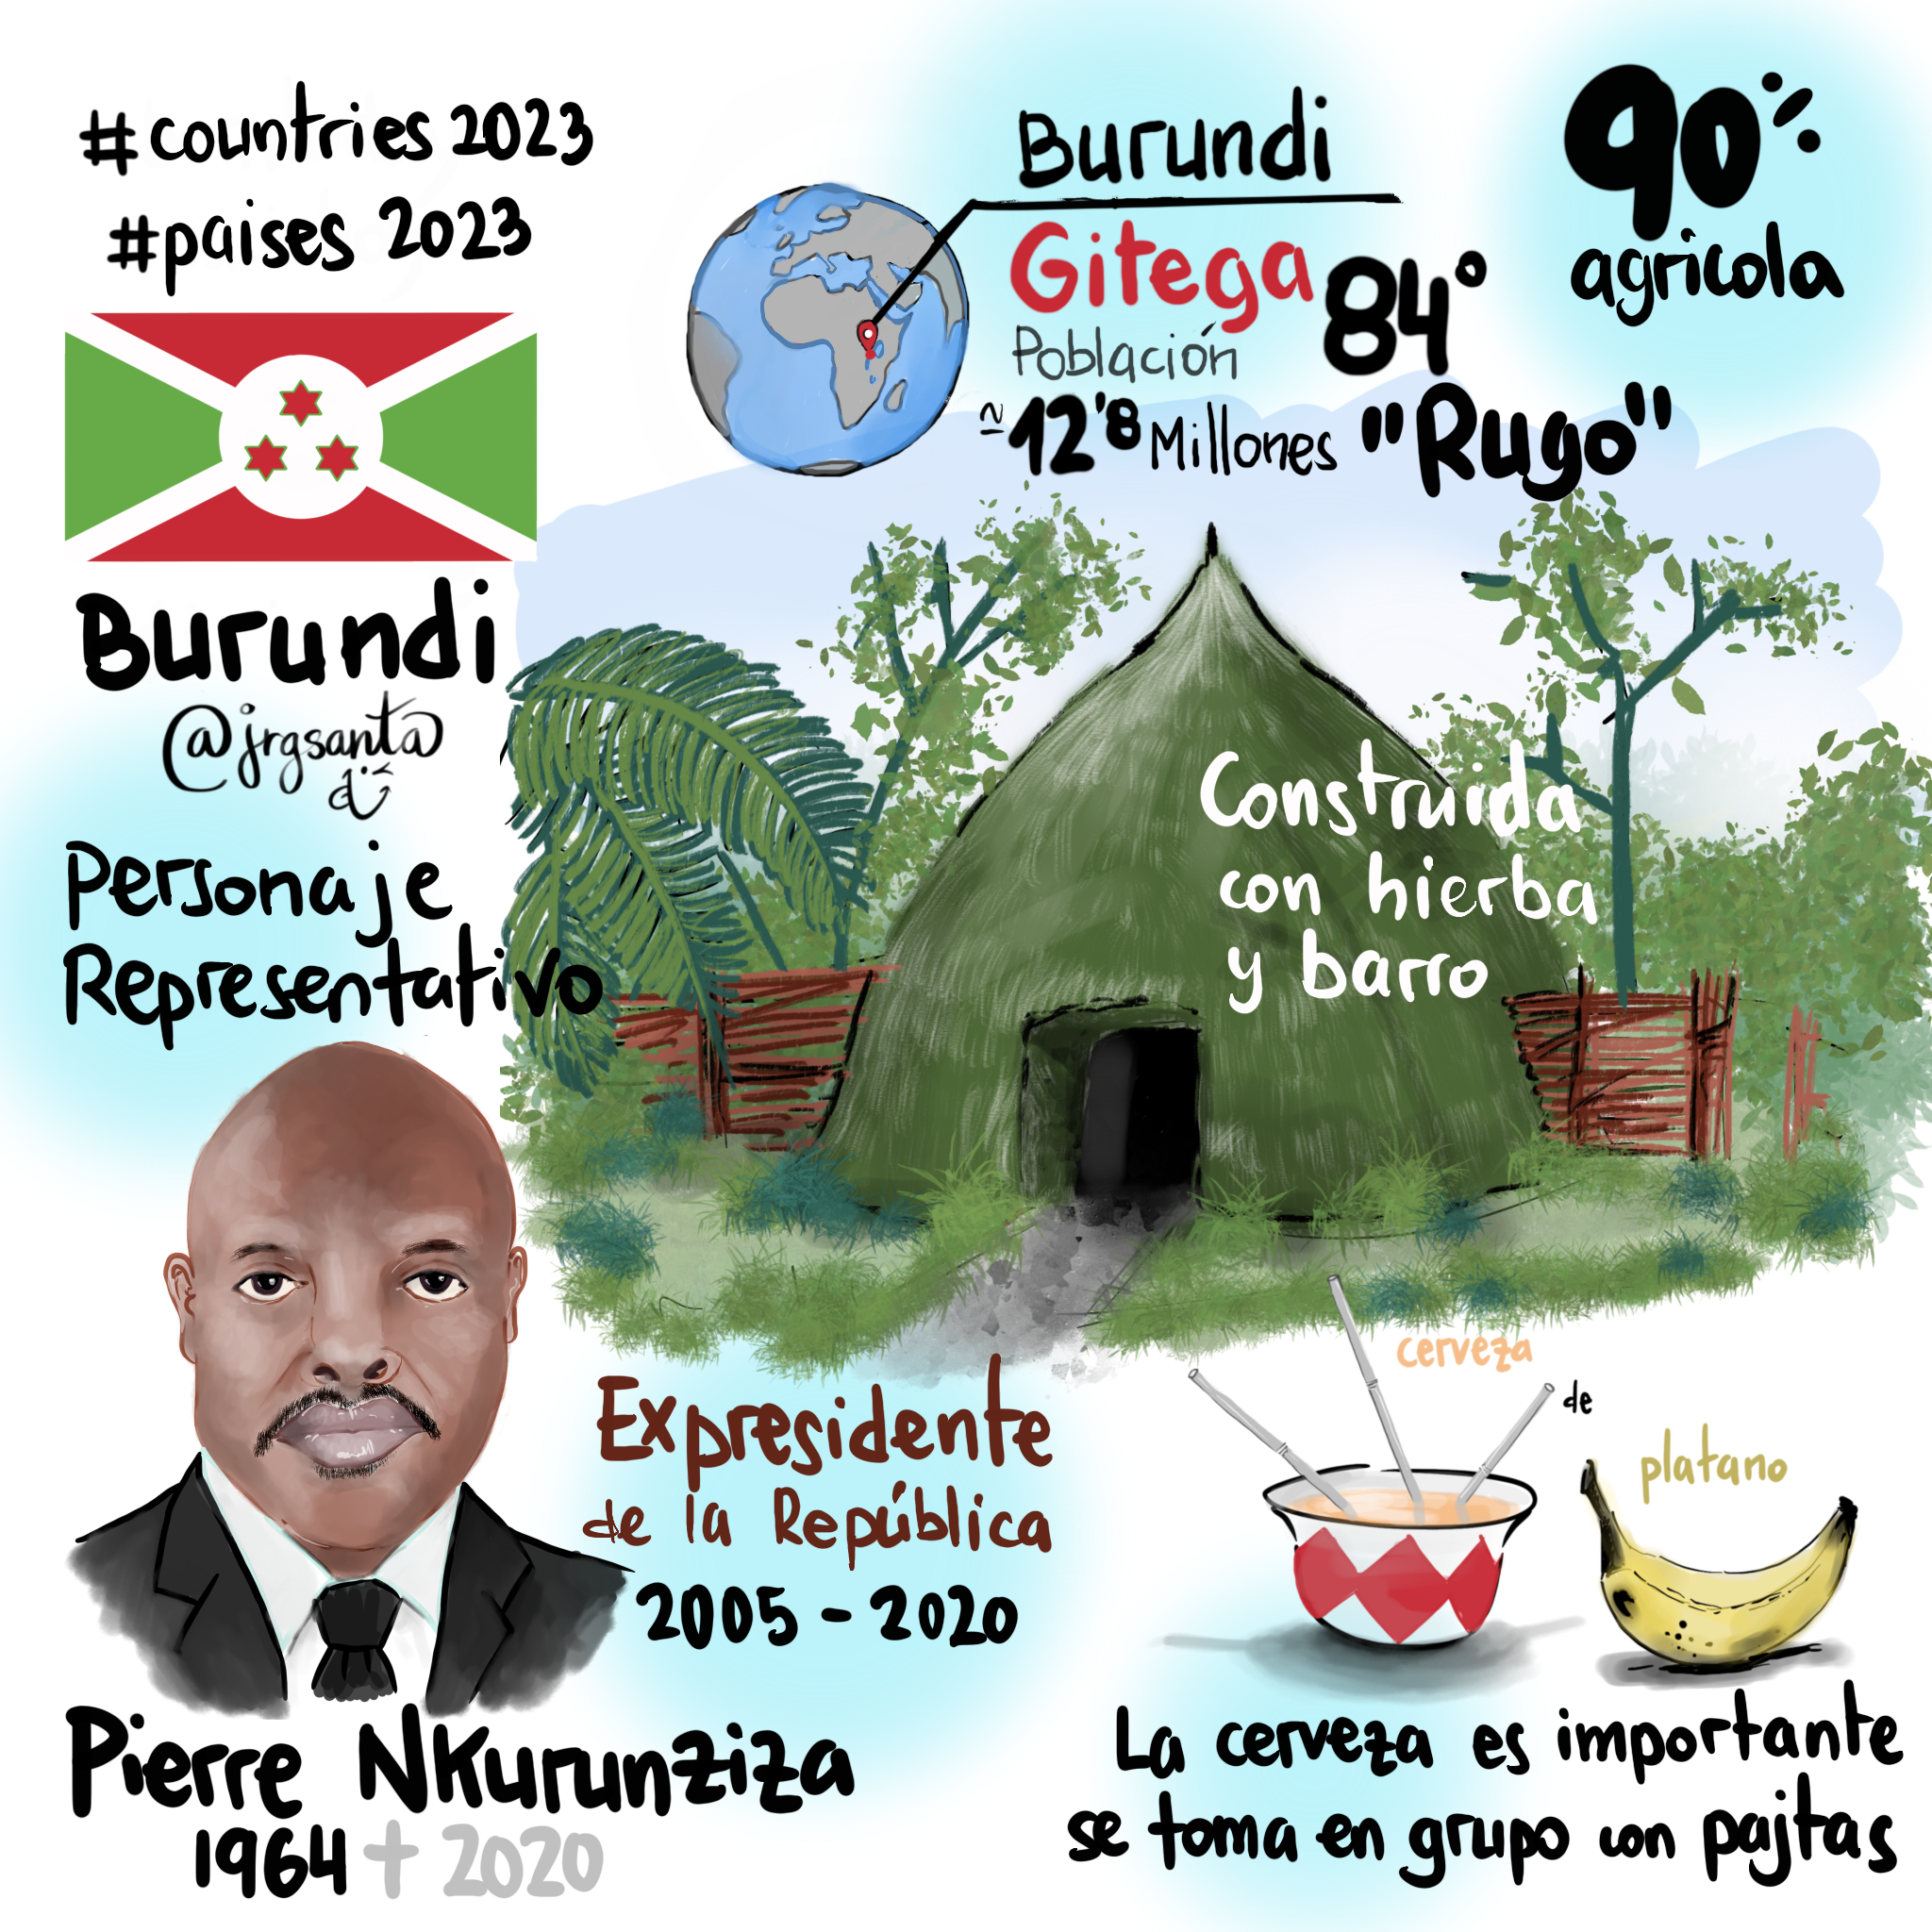 #countries 2023
#paises 2023
Burundi
@jrgsanta
Personaje
Representativo
Burundi
Gitega
84º
Población
≃12'8 Millones
90%
agricola
"Rugo"
Construida
con hierba
y barro
Expresidente
de la República
2005 - 2020
Pierre Nkurunziza
1964 † 2020
cerveza
de
platano
La cerveza es importante
se toma en grupo con pajtas